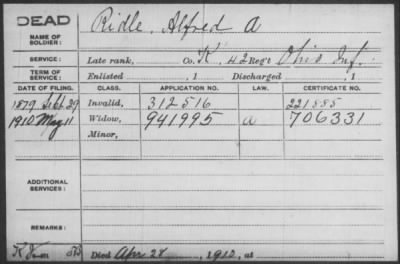 DEAD
NAME OF SOLDIER: Ridle, Alfred A
SERVICE: Late rank, Co. K, 42 Reg't Ohio Inf.
TERM OF SERVICE: Enlisted , 1 Discharged , 1
DATE OF FILING. CLASS. APPLICATION NO. LAW. CERTIFICATE NO.
1879 Sept 29 Invalid, 312516 221885
1910 May 11 Widow, 941995 a 706331
Minor,
ADDITIONAL SERVICES:
REMARKS:
Died Apr 28, 1910, at